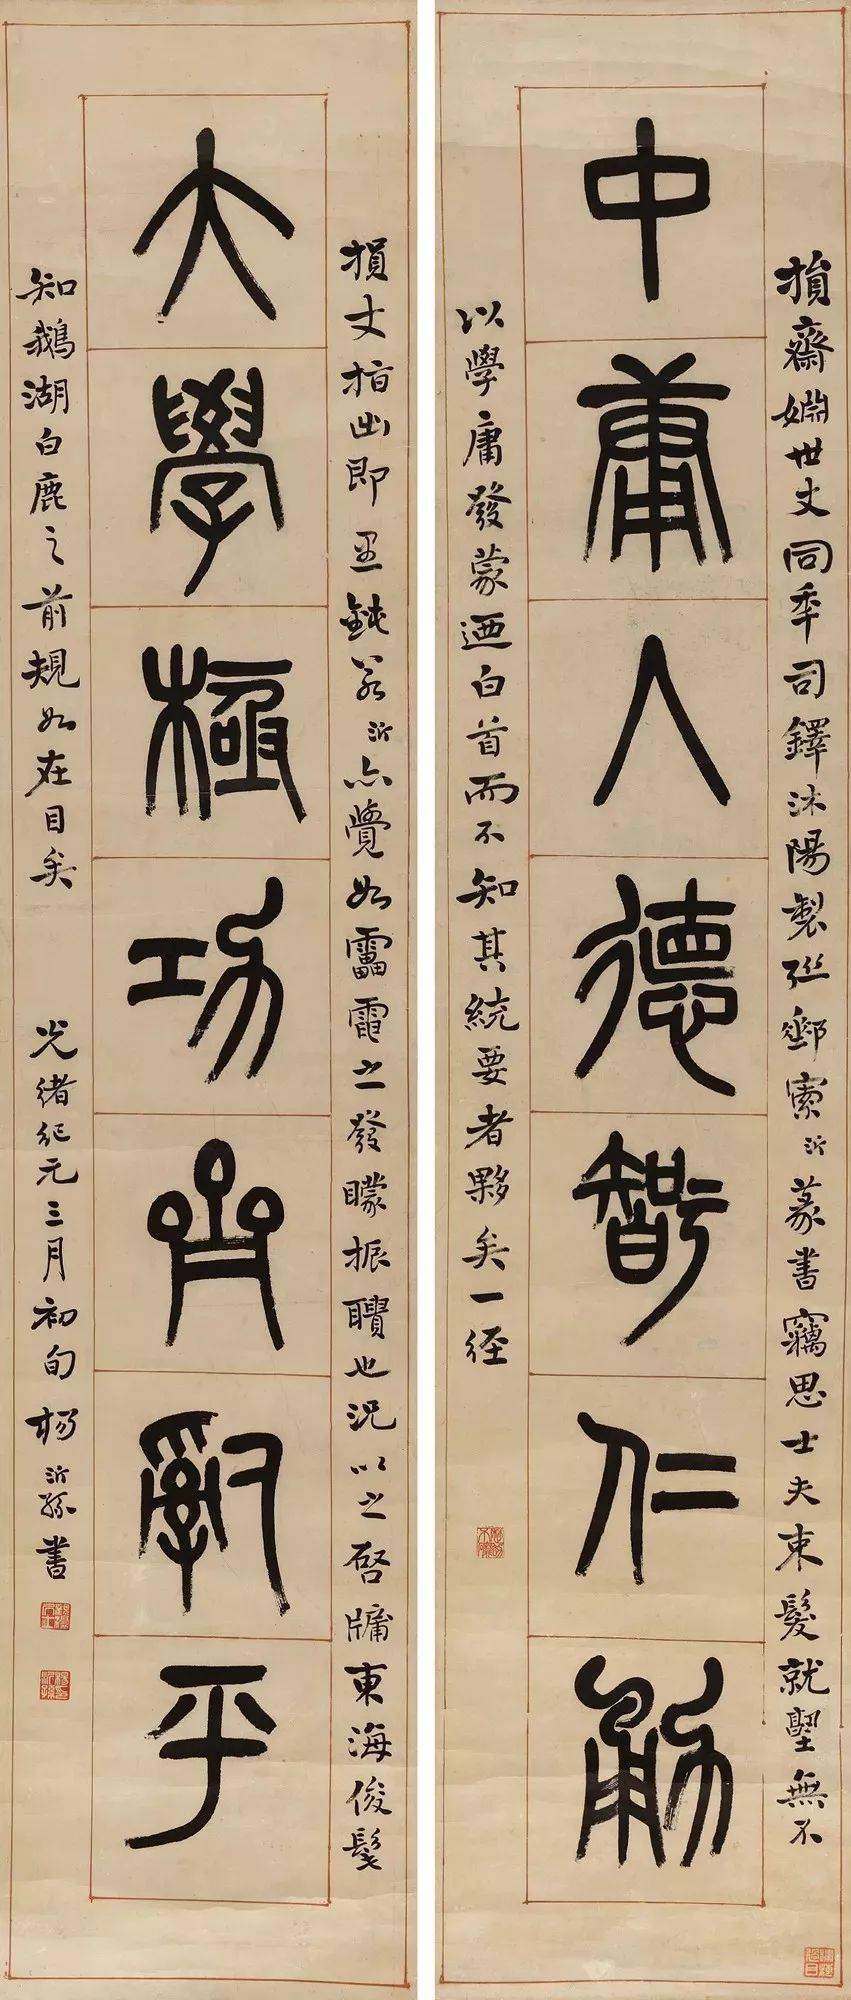 損齋婣世丈同年司鐸沭陽製聯郵索沂篆書竊思士夫束髮就塾無不
中庸入德智仁勇
以學庸發蒙迺白首而不知其統要者夥矣一經
損丈指出即愚鈍若沂亦覺如靁電之發矇振聵也況以之啓牖東海俊髦
大學極功齊治平
知鵝湖白鹿之前規如在目矣 光緒紀元三月初旬楊沂孫書